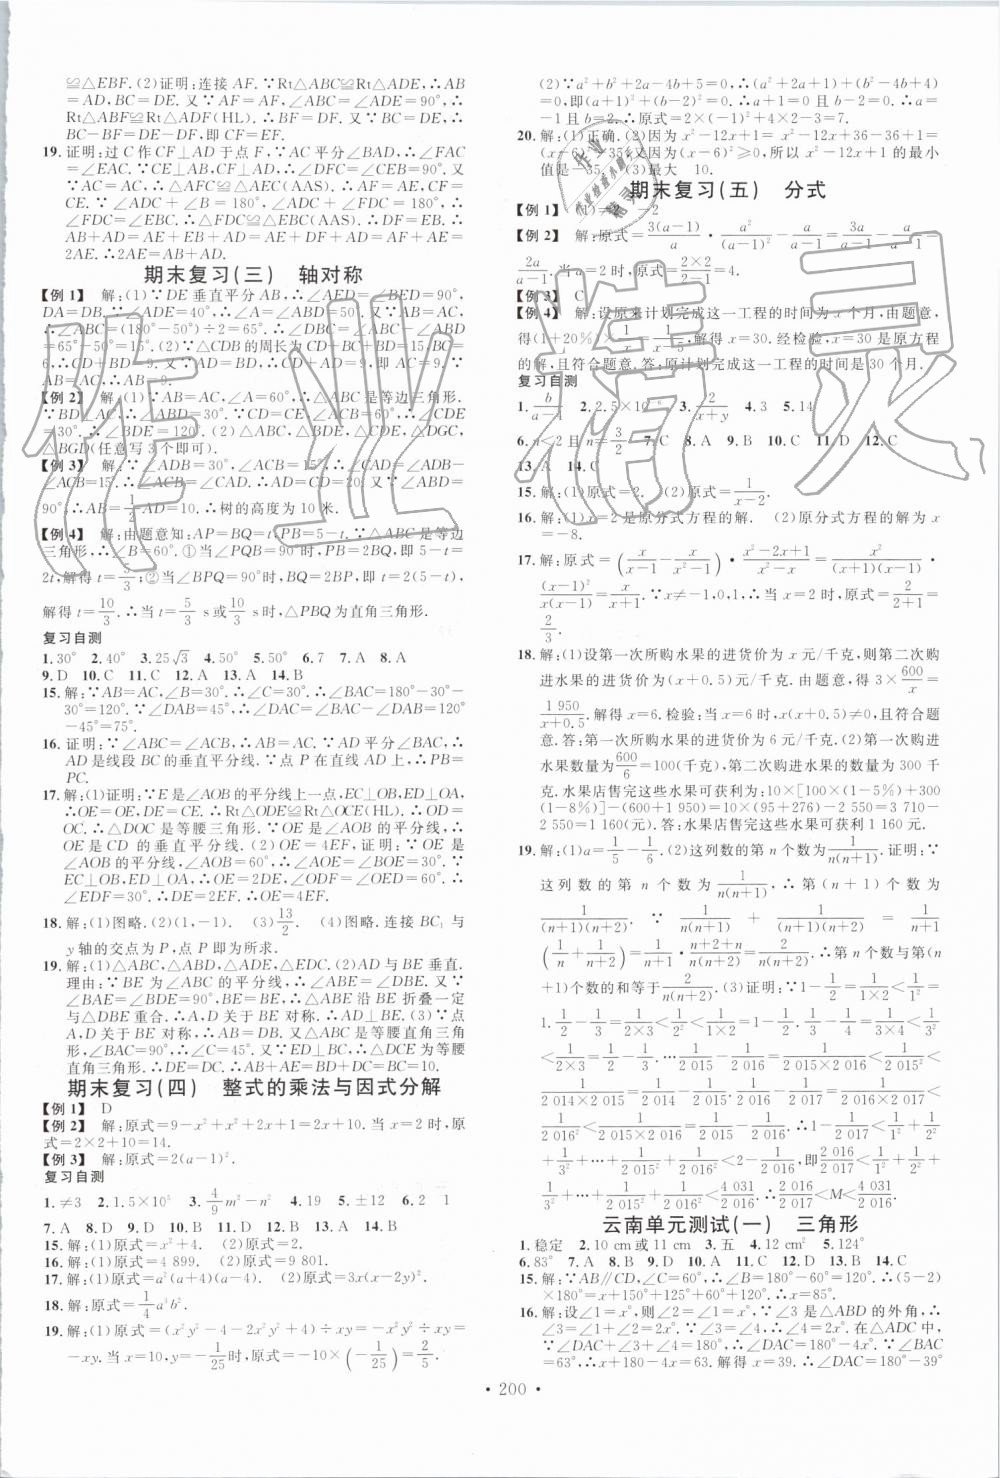 ≌△EBF. (2)证明:连接 AF. ∵Rt△ABC≌Rt△ADE,∴AB
=AD,BC=DE. 又∵∠ABF=∠ADF=90°,∴
Rt△ABF≌Rt△ADF(HL). ∴BF=DF. 又∵BC=DE,∴
BC-BF=DE-DF,即 CF=EF.
19. 证明:过 C 作 CF⊥AD 于点 F,∵AC 平分∠BAD,∴∠FAC
=∠EAC. ∵CE⊥AB,CF⊥AD,∴∠DFC=∠CEB=90°. 又
∵AC=AC,∴△AFC≌△AEC(AAS). ∴AF=AE,CF=
CE. ∵∠ADC+∠B=180°,∠ADC+∠FDC=180°,∴
∠FDC=∠EBC. ∴△FDC≌△EBC(AAS). ∴DF=EB. ∴
AB+AD=AE+EB+AD=AE+DF+AD=AF+AE=
2AE. ∴AB+AD=2AE.
期末复习(三) 轴对称
【例 1】 解:(1)∵DE 垂直平分AB,∴∠AED=∠BED=90°,
DA=DB. ∵∠A=50°,∴∠ABD=∠A=50°. 又∵AB=AC,
∴∠ABC=(180°-50°)÷2=65°. ∴∠DBC=∠ABC-∠ABD
=65°-50°=15°. (2)∵△CDB的周长为CD+BC+BD=15,BC=
6,∴CD+BD=9. ∵AD=BD,∴CD+AD=9,即 AC=9.
∵AB=AC,∴AB=9.
【例 2】 解:(1)∵AB=AC,∠A=60°,∴△ABC 是等边三角形.
∵BD⊥AC,∴∠DBC=30°. ∵CD=CE,∴∠CDE=∠CED
=30°. ∴∠BDE=120°. (2)△ABG,△BDE,△CDE,△DGC,
△BGD(任意写 3 个即可).
【例 3】 解:∵∠ADB=30°,∠ACB=15°,∴∠CAD=∠ADB
-∠ACB=15°. ∴∠ACB=∠CAD. ∴AD=CD=20. 又∵∠ABD=
90°,∴AB=1/2 AD=10. ∴树的高度为 10 米.
【例 4】 解:由题意知:AP=BQ=t,PB=5-t. ∵△ABC 是等边
三角形,∴∠B=60°. ①当∠PQB=90°时,PB=2BQ,即 5-t=
2t,解得 t=5/3;②当∠BPQ=90°时,BQ=2BP,即 t=2(5-t),
解得 t=10/3. ∴当 t=5/3 s或10/3 s时,△PBQ 为直角三角形.
复习自测
1. 30° 2. 40° 3. 25√3 4. 50° 5. 50° 6. 7 7. A 8. A
9. D 10. C 11. C 12. A 13. A 14. B
15. 解:∵AB=AC,∠B=30°,∴∠C=30°. ∴∠BAC=180°-30°-
30°=120°. ∵∠DAB=45°,∴∠DAC=∠BAC-∠DAB=120°
-45°=75°.
16. 证明:∵∠ABC=∠ACB,∴AB=AC. ∵AD 平分∠BAC,∴
AD是线段 BC的垂直平分线. ∵点 P 在直线 AD 上,∴PB=
PC.
17. (1)证明:∵E是∠AOB的平分线上一点,EC⊥OB,ED⊥OA,
∴OE=OE,DE=CE. ∴Rt△ODE≌Rt△OCE(HL). ∴OD=
OC. ∴△DOC 是等腰三角形. ∵OE 是∠AOB 的平分线,∴
OE 是 CD 的垂直平分线. (2)OE=4EF,证明:∵OE 是
∠AOB的平分线,∠AOB=60°,∴∠AOE=∠BOE=30°. ∵
EC⊥OB,ED⊥OA,∴OE=2DE,∠ODF=∠OED=60°. ∴
∠EDF=30°. ∴DE=2EF. ∴OE=4EF.
18. 解:(1)图略. (2)(1,-1). (3)13/2. (4)图略. 连接 BC₁ 与
y 轴的交点为 P,点 P 即为所求.
19. 解:(1)△ABC,△ABD,△ADE,△EDC. (2)AD与 BE 垂直.
理由:∵BE 为∠ABC 的平分线,∴∠ABE=∠DBE. 又∵
∠BAE=∠BDE=90°,BE=BE,∴△ABE 沿 BE 折叠一定
与△DBE 重合. ∴A,D 关于 BE 对称. ∴AD⊥BE. (3)∵
A,D 关于 BE 对称,∴AB=DB. 又△ABC是等腰直角三角
形,∠BAC=90°,∴∠C=45°. 又∵ED⊥BC,∴△DCE为等
腰直角三角形. ∴DE=DC. ∴AB+AE=BD+DC=BC=10.
期末复习(四) 整式的乘法与因式分解
【例 1】 D
【例 2】 解:原式=9-x²+x²+2x+1=2x+10. 当 x=2 时,原
式=2×2+10=14.
【例 3】 解:原式=2(a-1)².
复习自测
1. ≠3 2. 1.5×10⁵ 3. 4/9 m²-n² 4. 19 5. ±12 6. 2 1
7. A 8. D 9. D 10. B 11. A 12. D 13. A 14. B
15. 解:(1)原式=x²+4. (2)原式=2x-1.
16. 解:(1)原式=4 899. (2)原式=9 800.
17. 解:(1)原式=a²(a+4)(a-4). (2)原式=3x(x-2y)².
18. 解:原式=1/4 a³b².
19. 解:(1)原式=(x²y²-4-2x²y²+4)÷xy=-x²y²÷xy=
-xy. 当 x=10,y=-1/25时,原式=-10×(-1/25)=2/5.
(2)∵a²+b²+2a-4b+5=0,∴(a²+2a+1)+(b²-4b+4)
=0,即(a+1)²+(b-2)²=0. ∴a+1=0 且 b-2=0. ∴a=
-1且 b=2. ∴原式=2×(-1)²+4×2-3=7.
20. 解:(1)正确. (2)因为 x²-12x+1=x²-12x+36-36+1
=(x-6)²-35,因为(x-6)²≥0,所以 x²-12x+1 的最小
值是-35. (3)最大 10.
期末复习(五) 分式
【例 1】 (1)≠2 -2
【例 2】 解:原式=3(a-1)/a · a²/(a-1)² - a/(a-1)=3a/(a-1)-a/(a-1)=
2a/(a-1). 当 a=2 时,原式=2×2/(2-1)=4.
【例 3】 C
【例 4】 解:设原来计划完成这一工程的时间为 x 个月,由题意,
得(1+20%)×1/x=1/(x-5). 解得 x=30. 经检验,x=30 是原方程
的解,且符合题意. 答:原计划完成这一工程的时间是 30 个月.
复习自测
1. b/(a-1) 2. 2.5×10⁻⁶ 3. 2/(x+y) 4. 3 5. 14
6. n<2 且 n≠3/2 7. C 8. A 9. B 10. C 11. D 12. C
13. A 14. C
15. 解:(1)原式=2. (2)原式=1/(x-2).
16. 解:(1)x=2是原分式方程的解. (2)原分式方程的解为 x
=-8.
17. 解:原式=(x/(x-1)-x/(x²-1))·(x²-2x+1)/(x²-x)=x²/((x+1)(x-1))·
(x-1)²/(x(x-1))=x/(x+1). ∵x≠-1,0,1,∴当 x=2 时,原式=2/(2+1)=
2/3.
18. 解:(1)设第一次所购水果的进货价为 x 元/千克,则第二次购
进水果的进货价为(x+0.5)元/千克. 由题意,得 3×600/x=
1 950/(x+0.5). 解得 x=6. 检验:当 x=6 时,x(x+0.5)≠0,且符合题
意. 答:第一次所购水果的进货价为 6 元/千克. (2)第一次购进
水果的数量为600/6=100(千克),第二次购进水果的数量为 300 千
克. 水果店售完这些水果可获利为:10×[100×(1-5%)+300
(1-8%)]-(600+1 950)=10×(95+276)-2 550=3 710-
2 550=1 160(元). 答:水果店售完这些水果可获利 1 160 元.
19. 解:(1)a=1/5-1/6. (2)这列数的第 n 个数为1/(n(n+1)). 证明:∵
这列数的第 n 个数为 1/(n(n+1)),∴第(n+1)个数为
1/((n+1)(n+2)). ∵ 1/(n(n+1)) + 1/((n+1)(n+2)) = 1/(n+1)
(1/n+1/(n+2))=1/(n+1)×(n+2+n)/(n(n+2))=2/(n(n+2)),∴第 n 个数与第(n
+1)个数的和等于2/(n(n+2)). (3)证明:∵1-1/2=1/(1×2)<1/1²=
1. 1/2-1/3=1/(2×3)<1/2²<1/(1×2)=1-1/2,1/3-1/4=1/(3×4)<1/3²
<1/(2×3)=1/2-1/3,…,1/2 015-1/2 016=1/(2 015×2 016)<1/2 015²<
1/(2 014×2 015)=1/2 014-1/2 015,1/2 016-1/2 017=1/(2 016×2 017)<
1/2 016²<1/(2 015×2 016)=1/2 015-1/2 016,∴1-1/2 017<1/1²+1/2²+
1/3²+…+1/2 015²+1/2 016²<2-1/2 016,即2 016/2 017<1/1²+1/2²+
1/3²+…+1/2 015²+1/2 016²<4 031/2 016. ∴2 016/2 017<M<4 031/2 016.
云南单元测试(一) 三角形
1. 稳定 2. 10 cm或 11 cm 3. 五 4. 12 cm² 5. 124°
6. 83° 7. B 8. D 9. A 10. C 11. A 12. A 13. D 14. C
15. 解:∵AB∥CD,∠C=60°,∴∠B=180°-60°=120°. ∴(5-2)
×180°=x+120°+125°+60°+150°. ∴x=85°.
16. 解:设∠1=x°,则∠2=x°. ∵∠3 是△ABD 的外角,∴
∠3=∠1+∠2=2x°. ∴∠4=∠3=2x°. ∴在△ADC 中,
∠DAC=180°-∠3-∠4=180°-4x°. ∵∠BAC=
63°,∴x+180-4x=63. 解得 x=39. ∴∠DAC=180°-39°
• 200 •
作业精灵